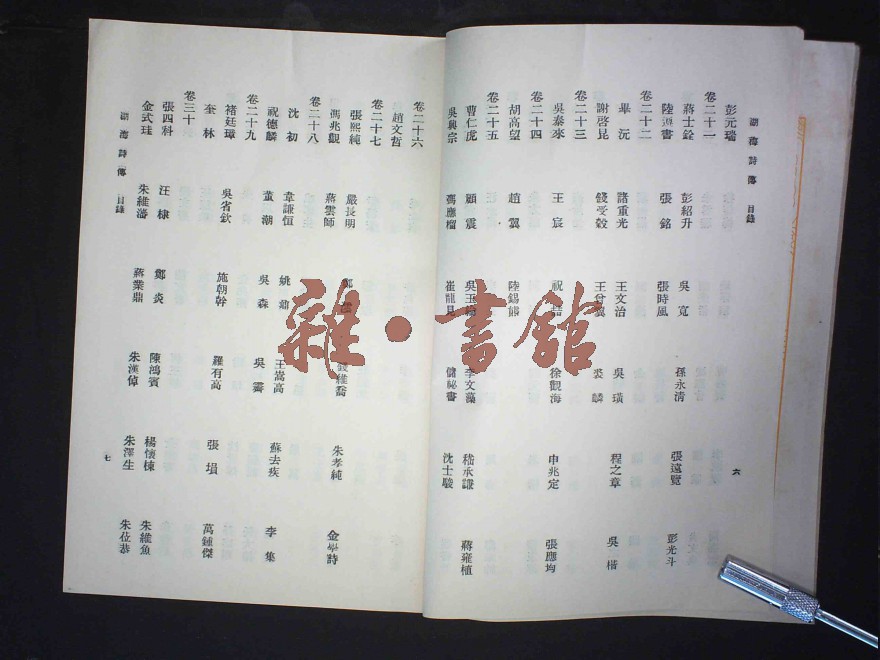 湖海詩傳 目錄
彭元瑞
卷二十一
蔣士銓 彭紹升 吳寬 孫永清 張遠覽 彭光斗
陸 書 張銘 張時風
卷二十二
畢沅 諸重光 王文治 吳璜 程之章 吳楷
謝啓昆 錢受穀 裘麟
卷二十三
吳泰來 王宸 祝 徐觀海 申兆定 張應均
卷二十四
胡高望 趙翼 陸錫熊
卷二十五
曹仁虎 顧震 吳玉 李文藻 嵇承謙 蔣雍植
吳興宗 馮應榴 崔龍見 儲祕書 沈士駿
六
卷二十六
趙文哲
卷二十七
張熙純 嚴長明 維喬 朱孝純 金學詩
馮兆觀 蔣雲師
卷二十八
沈初 韋謙恒 姚鼐 王嵩高 蘇去疾 李集
祝德麟 董潮 吳森 吳霽
卷二十九
褚廷璋 吳省欽 施朝幹 羅有高 張塤 萬鍾傑
奎林
卷三十
張四科 汪棣 鄭炎 陳鴻賓 楊懷棟 朱維魚
金式珪 朱維藩 蔣業鼎 朱漢倬 朱澤生 朱莅恭
湖海詩傳 目錄
七
雜·書館